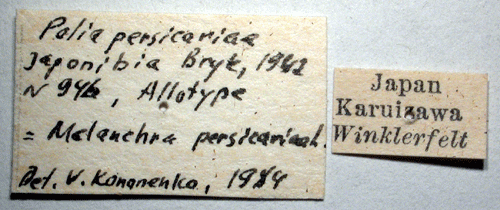 Polia persicariae
japonibia Bryk, 1942
N 946, Allotype
= Melanchra persicariae L.
Det. V. Kononenko, 1984
Japan
Karuizawa
Winklerfelt